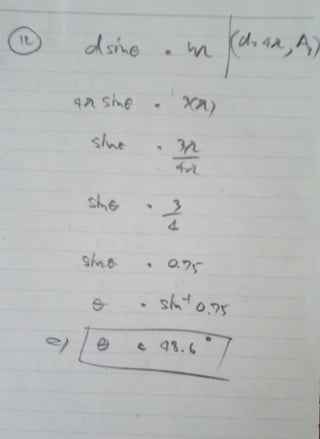 12 d sinθ = m | (d=4λ, A3)
4λ sinθ = 3(λ)
sinθ = 3λ/4λ
sinθ = 3/4
sinθ = 0.75
θ = sin⁻¹ 0.75
e) θ = 48.6°